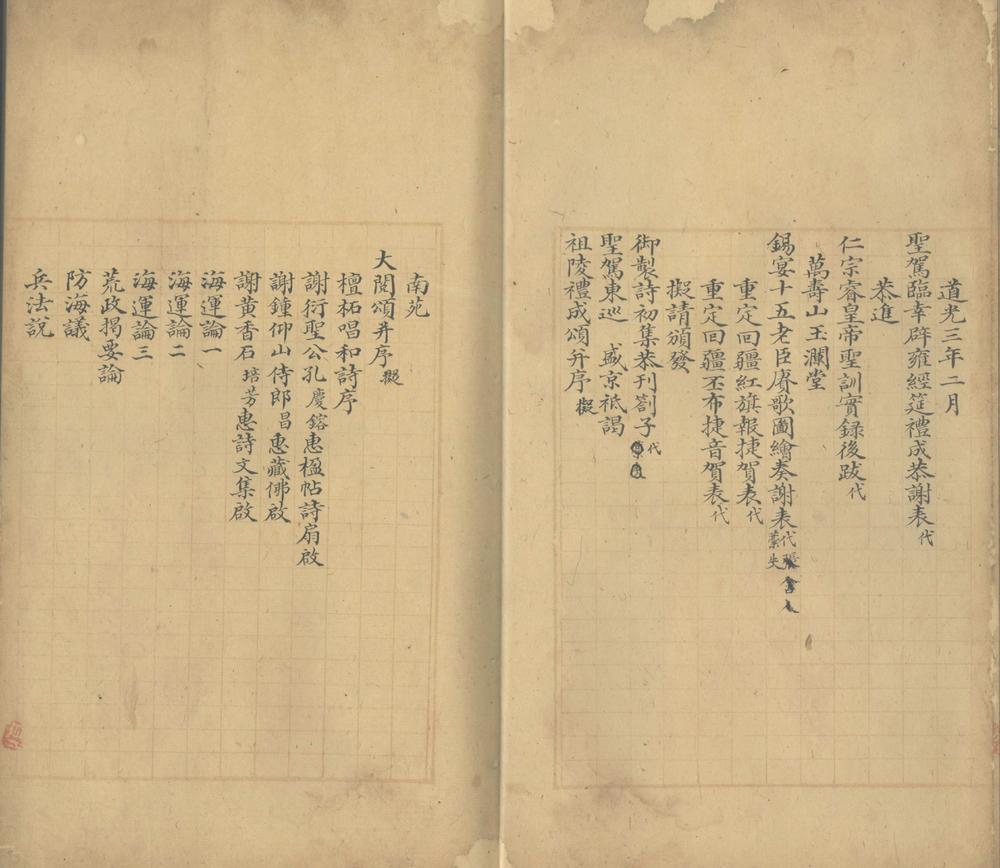 道光三年二月
聖駕臨幸辟雍經筵禮成恭謝表代
恭進
仁宗睿皇帝聖訓實録後跋代
萬壽山玉瀾堂
錫宴十五老臣賡歌圖繪奏謝表代張舍人藁失
重定回疆紅旗報捷賀表代
重定回疆丕布捷音賀表代
擬請頒發
御製詩初集恭刊劄子代
聖駕東巡 盛京祗謁
祖陵禮成頌并序擬
南苑
大閱頌并序擬
檀柘唱和詩序
謝衍聖公孔慶鎔惠楹帖詩扇啟
謝鐘仰山侍郎昌惠藏佛啟
謝黄香石培芳惠詩文集啟
海運論一
海運論二
海運論三
荒政揭要論
防海議
兵法説